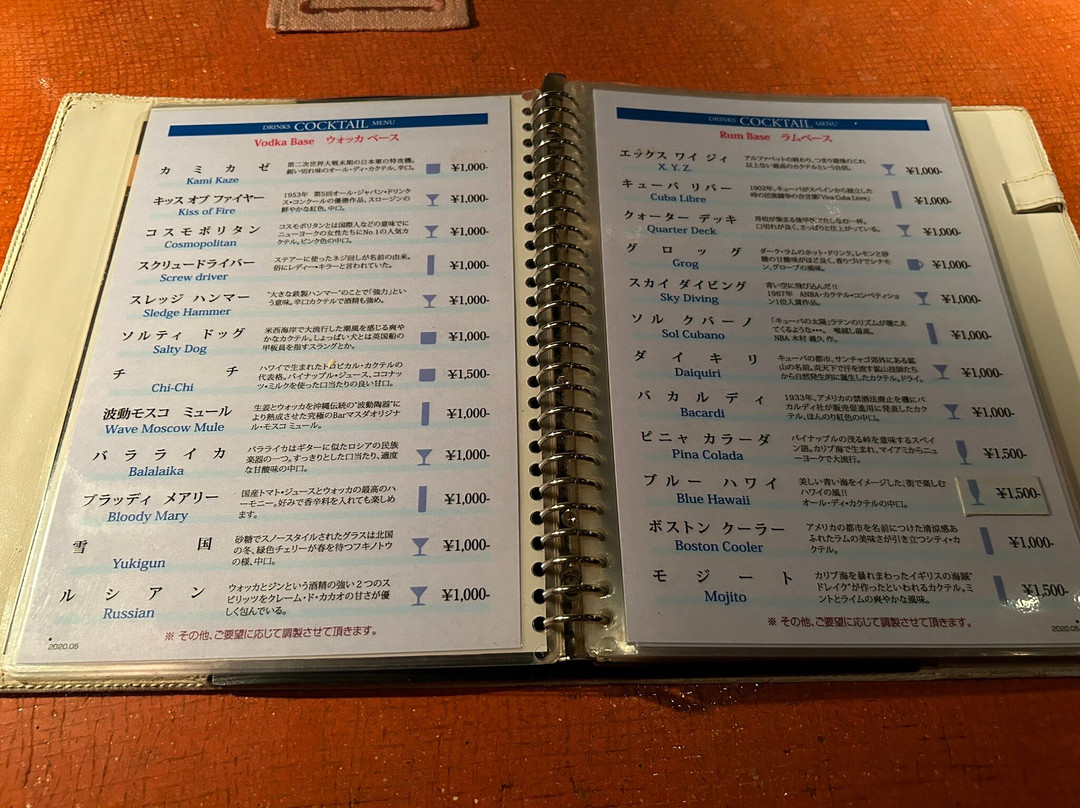 DRINKS COCKTAIL MENU
Vodka Base ウォッカ ベース
カミカゼ
Kami Kaze
第二次世界大戦末期の日本軍の特攻機。
鋭い切れ味のオール・ディ・カクテル、辛口。
¥1,000-
キッス オブ ファイヤー
Kiss of Fire
1953年 第5回オール・ジャパン・ドリンク
ス・コンクールの優勝作品、スロージンの
鮮やかな紅色、中口。
¥1,000-
コスモポリタン
Cosmopolitan
コスモポリタンとは国際人などの意味でに
ニューヨークの女性たちにNo.1の人気カ
クテル。ピンク色の中口。
¥1,000-
スクリュードライバー
Screw driver
ステアーに使ったネジ回しが名前の由来。
俗にレディー・キラーと言われていた。
¥1,000-
スレッジ ハンマー
Sledge Hammer
"大きな鉄製ハンマー"のことで「強力」とい
う意味。辛口カクテルで酒精も強め。
¥1,000-
ソルティ ドッグ
Salty Dog
米西海岸で大流行した潮風を感じる爽や
かなカクテル。しょっぱい犬とは英国船の
甲板員を指すスラングとか。
¥1,000-
チチ
Chi-Chi
ハワイで生まれたトロピカル・カクテルの
代表格。パイナップル・ジュース、ココナッ
ツ・ミルクを使った口当たりの良い甘口。
¥1,500-
波動モスコ ミュール
Wave Moscow Mule
生姜とウォッカを沖縄伝統の"波動陶器"に
より熟成させた究極のBarマスダオリジナ
ル・モスコ ミュール。
¥1,000-
バラライカ
Balalaika
バラライカはギターに似たロシアの民族
楽器の一つ。すっきりとした口当たり、適度
な甘酸味の中口。
¥1,000-
ブラッディ メアリー
Bloody Mary
国産トマト・ジュースとウォッカの最高のハ
ーモニー。好みで香辛料を入れても楽しめ
ます。
¥1,000-
雪国
Yukigun
砂糖でスノースタイルされたグラスは北国
の冬、緑色チェリーが春を待つフキノトウ
の様、中口。
¥1,000-
ルシアン
Russian
ウォッカとジンという酒精の強い2つのス
ピリッツをクレーム・ド・カカオの甘さが優
しく包んでいる。
¥1,000-
※ その他、ご要望に応じて調製させて頂きます。
2020.05
DRINKS COCKTAIL MENU
Rum Base ラムベース
エックス ワイ ジィ
X. Y. Z.
アルファベットの終わり、つまり最後のこれ
以上ない最高のカクテルという自信。
¥1,000-
キューバ リバー
Cuba Libre
1902年、キューバがスペインから独立した
時の民族闘争の合言葉「Viva Cuba Libre」
¥1,000-
クォーター デッキ
Quarter Deck
口切れが良く、さっぱりと仕上がっている。
¥1,000-
グロッグ
Grog
ダーク・ラムのホット・ドリンク。レモンと砂
糖の甘酸味がほど良く、香りづけでシナモ
ン、グローブの風味。
¥1,000-
スカイ ダイビング
Sky Diving
青い空に飛び込んだ!!
1967年 ANBA・カクテル・コンペティショ
ン1位入賞作品。
¥1,000-
ソル クバーノ
Sol Cubano
「キューバの太陽」ラテンのリズムが聴こえ
てくるような・・・。 喉越し最高。
NBA 木村 義久 作。
¥1,000-
ダイキリ
Daiquiri
キューバの都市、サンチャゴ郊外にある鉱
山の名前。炎天下で汗を流す鉱山技師たち
から自然発生的に誕生したカクテル、ドライ。
¥1,000-
バカルディ
Bacardi
1933年、アメリカの禁酒法廃止を機にバ
カルディ社が販売促進用に発表したカク
テル、ほんのり紅色の中口。
¥1,000-
ピニャ カラーダ
Pina Colada
パイナップルの茂る峠を意味するスペイ
ン語。カリブ海で生まれ、マイアミからニュ
ーヨークで大流行。
¥1,500-
ブルー ハワイ
Blue Hawaii
美しい青い海をイメージした、街で楽しむ
ハワイの風!!
オール・ディ・カクテルの中口。
¥1,500-
ボストン クーラー
Boston Cooler
アメリカの都市を名前につけた清涼感あ
ふれたラムの美味さが引き立つシティ・カ
クテル。
¥1,000-
モジート
Mojito
カリブ海を暴れまわったイギリスの海賊"
ドレイク"が作ったといわれるカクテル。ミ
ントとライムの爽やかな風味。
¥1,500-
※ その他、ご要望に応じて調製させて頂きます。
2020.05